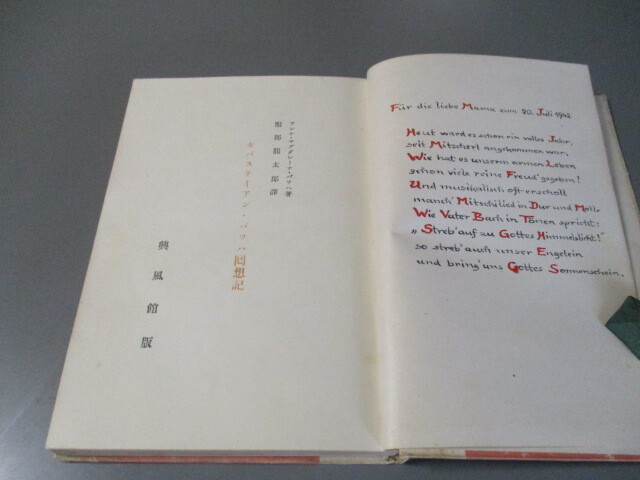 アンナ・マグダレーナ・バッハ著
服部龍太郎譯
セバスティアン・バッハ回想記
興風館版
Für die liebe Mama zum 20. Juli 1942
Heut ward es schon ein volles Jahr,
seit Mitscherl angekommen war,
Wie hat es unserm armen Leben
schon viele reine Freud' gegeben!
Und musikalisch oft erscholl
manch' Mitschilied in Dur und Moll.
Wie Vater Bach in Tönen spricht:
„Streb' auf zu Gottes Himmelslicht!"
so streb' auch unser Engelein
und bring' uns Gottes Sonnenschein.